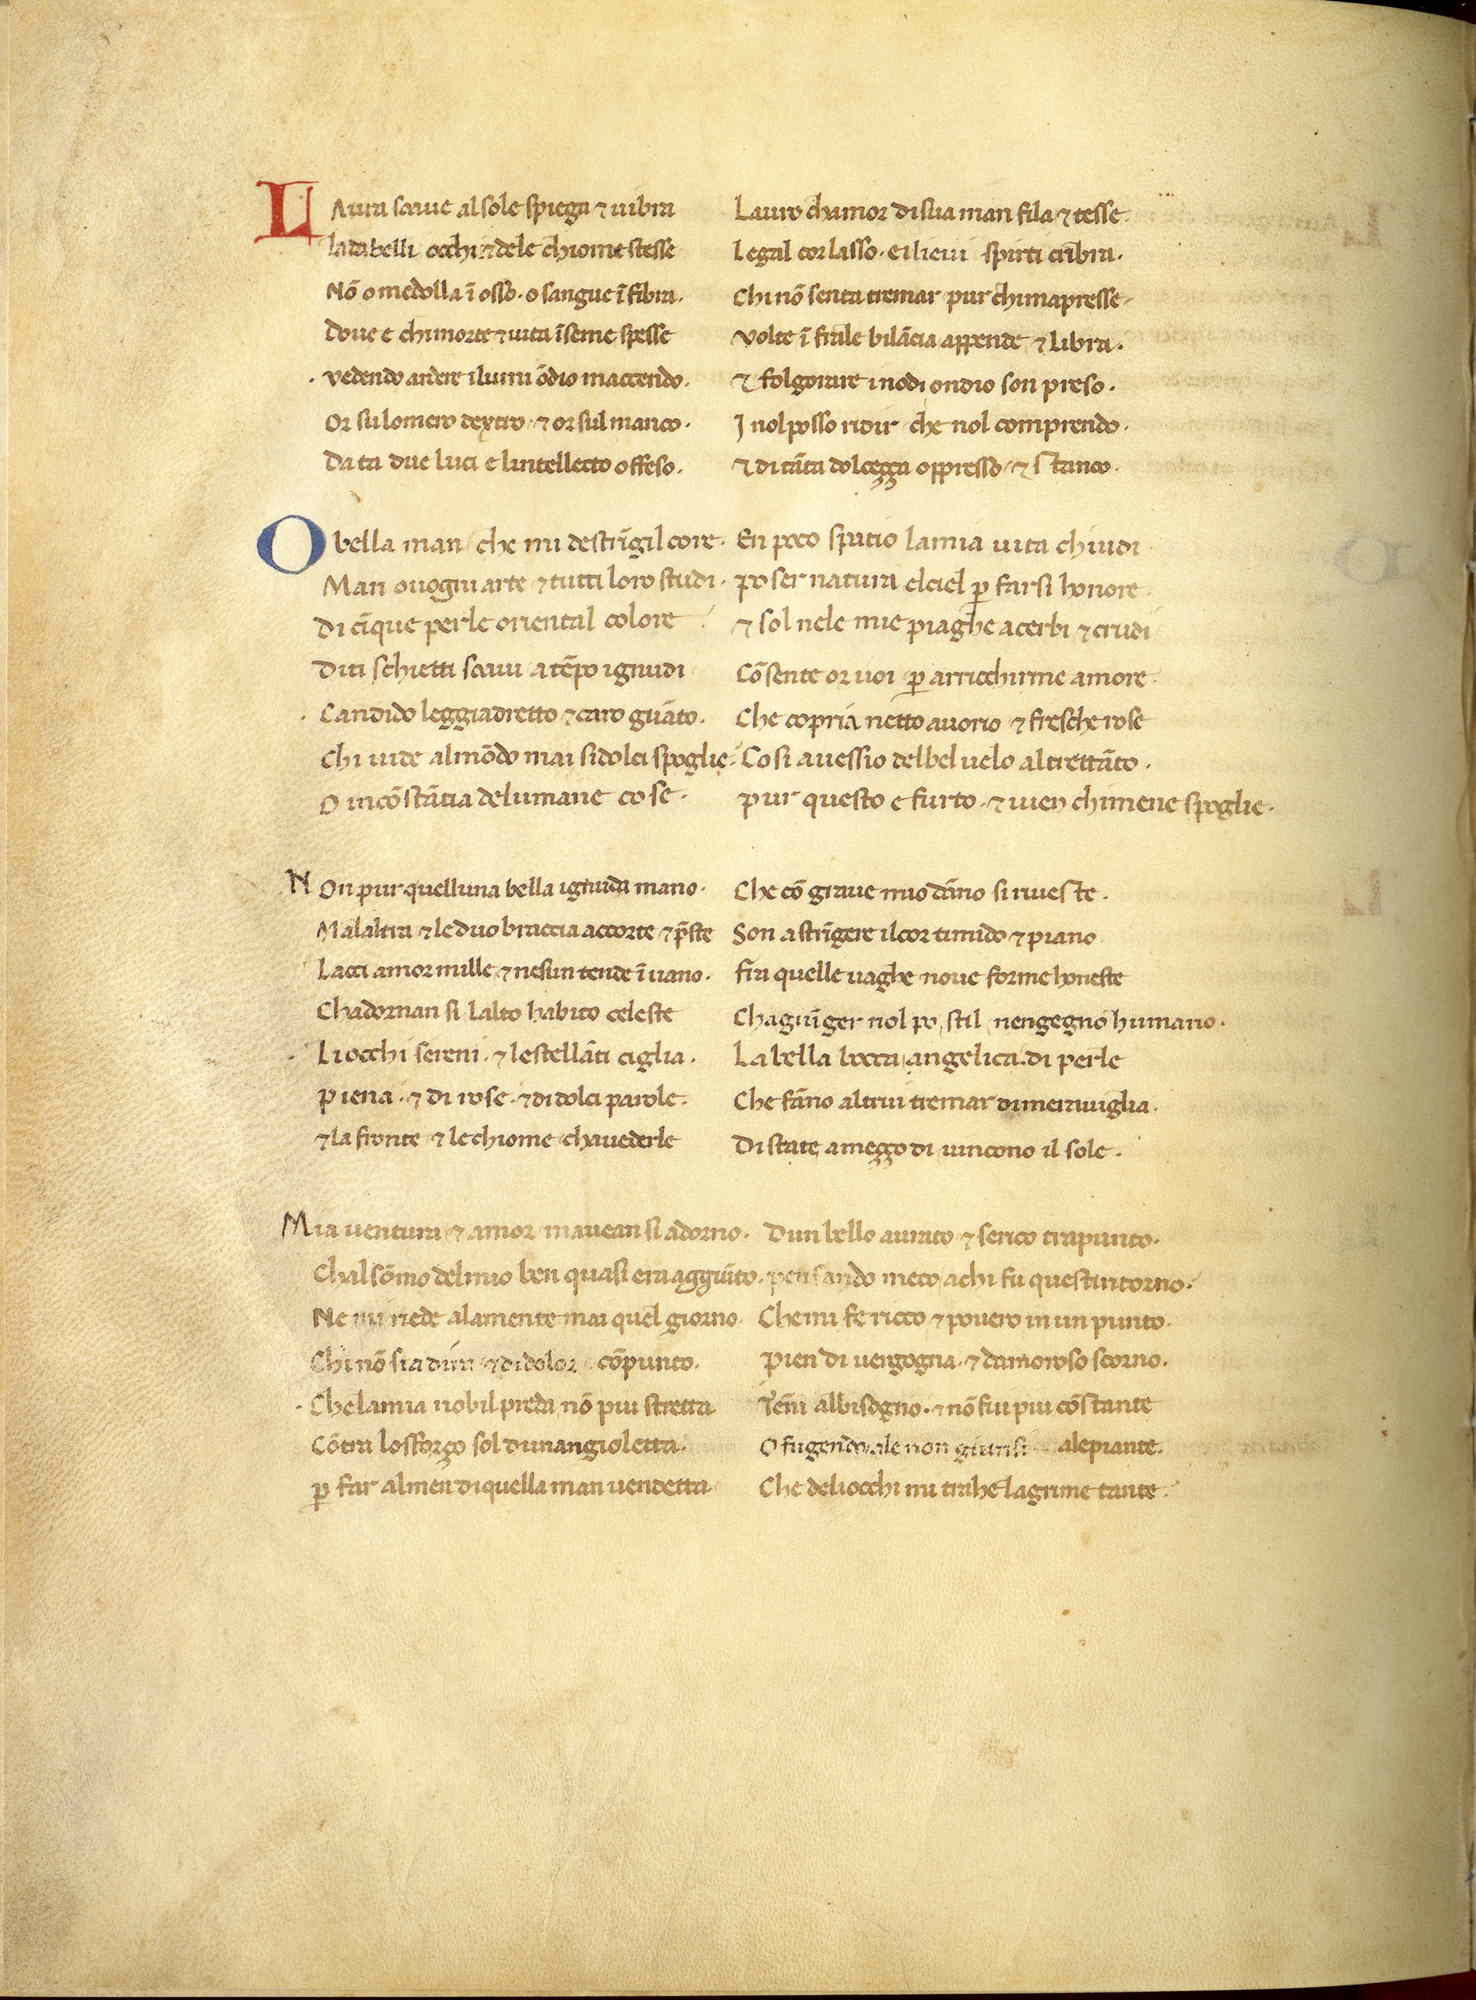 LAura soaue al sole spiega ⁊ uibra Lauro chamor di sua man fila ⁊ tesse
la da belli occhi ⁊ dele chiome stesse Lega l cor lasso · e i lieui spirti cribra ·
Nō o medolla ī osso · o sangue ī fibra · Chi nō senta tremar pur chi mapresse
Doue e chi morte ⁊ uita īseme spesse volte ī frale bilācia appende ⁊ Libra ·
· vedendo ardere i lumi ōdio maccendo · ⁊ folgorare i nodi ondio son preso ·
Or su lomero dextro · ⁊ or sul manco · I nol posso ridir che nol comprendo ·
Da ta due luci e lintellecto offeso · ⁊ di tāta dolcezza oppresso · ⁊ stanco ·
O bella man che mi destrīgi l core · En poco spatio la mia uita chiudi
Man ouogni arte ⁊ tutti loro studi · poser natura el ciel ꝑ farsi honore ·
Di cīque perle oriental colore ⁊ sol nele mie piaghe acerbi ⁊ crudi
Diti schietti soaui a tēpo ignudi Cōsente or uoi ꝑ arricchirme amore ·
· Candido leggiadretto ⁊ caro guāto · Che copria netto auorio ⁊ fresche rose
Chi uide al mōdo mai si dolci spoglie · Cosi auessio del bel uelo altrettāto ·
O incōstātia delumane cose · pur questo e furto · ⁊ uien chi me ne spoglie ·
NOn pur quelluna bella ignuda mano · Che cō graue mio dāno si riueste ·
Ma laltra ⁊ le duo braccia accorte ⁊ p̄ste Son a strīgere il cor timido ⁊ piano
Lacci amor mille ⁊ nesun tende ī uano · fra quelle uaghe noue forme honeste
Chadornan si lalto habito celeste Chagiūger nol po stil nengegno humano ·
· Li occhi sereni · ⁊ le stellāti ciglia · La bella bocca angelica · di perle
piena · ⁊ di rose · ⁊ di dolci parole · Che fāno altrui tremar di merauiglia ·
⁊ la fronte ⁊ le chiome cha uederle Di state a mezzo di uincono il sole ·
Mia uentura ⁊ amor mauean si adorno · Dun bello aurato ⁊ serico trapunto ·
Chal sōmo del mio ben quasi era aggiūto · pensando meco a chi fu questintorno ·
Ne mi riede ala mente mai quel giorno · Che mi fe ricco ⁊ pouero in un punto ·
Chi nō sia dira ⁊ di dolor cōpunto · pien di uergogna · ⁊ damoroso scorno ·
· Che la mia nobil preda nō piu stretta Tēni al bisogno · ⁊ nō fui piu cōstante
Cōtra lo sforço sol dunangioletta · O fugendo ale non giunsi ale piante ·
ꝑ far almen di quella man uendetta Che deli occhi mi trahe lagrime tante ·